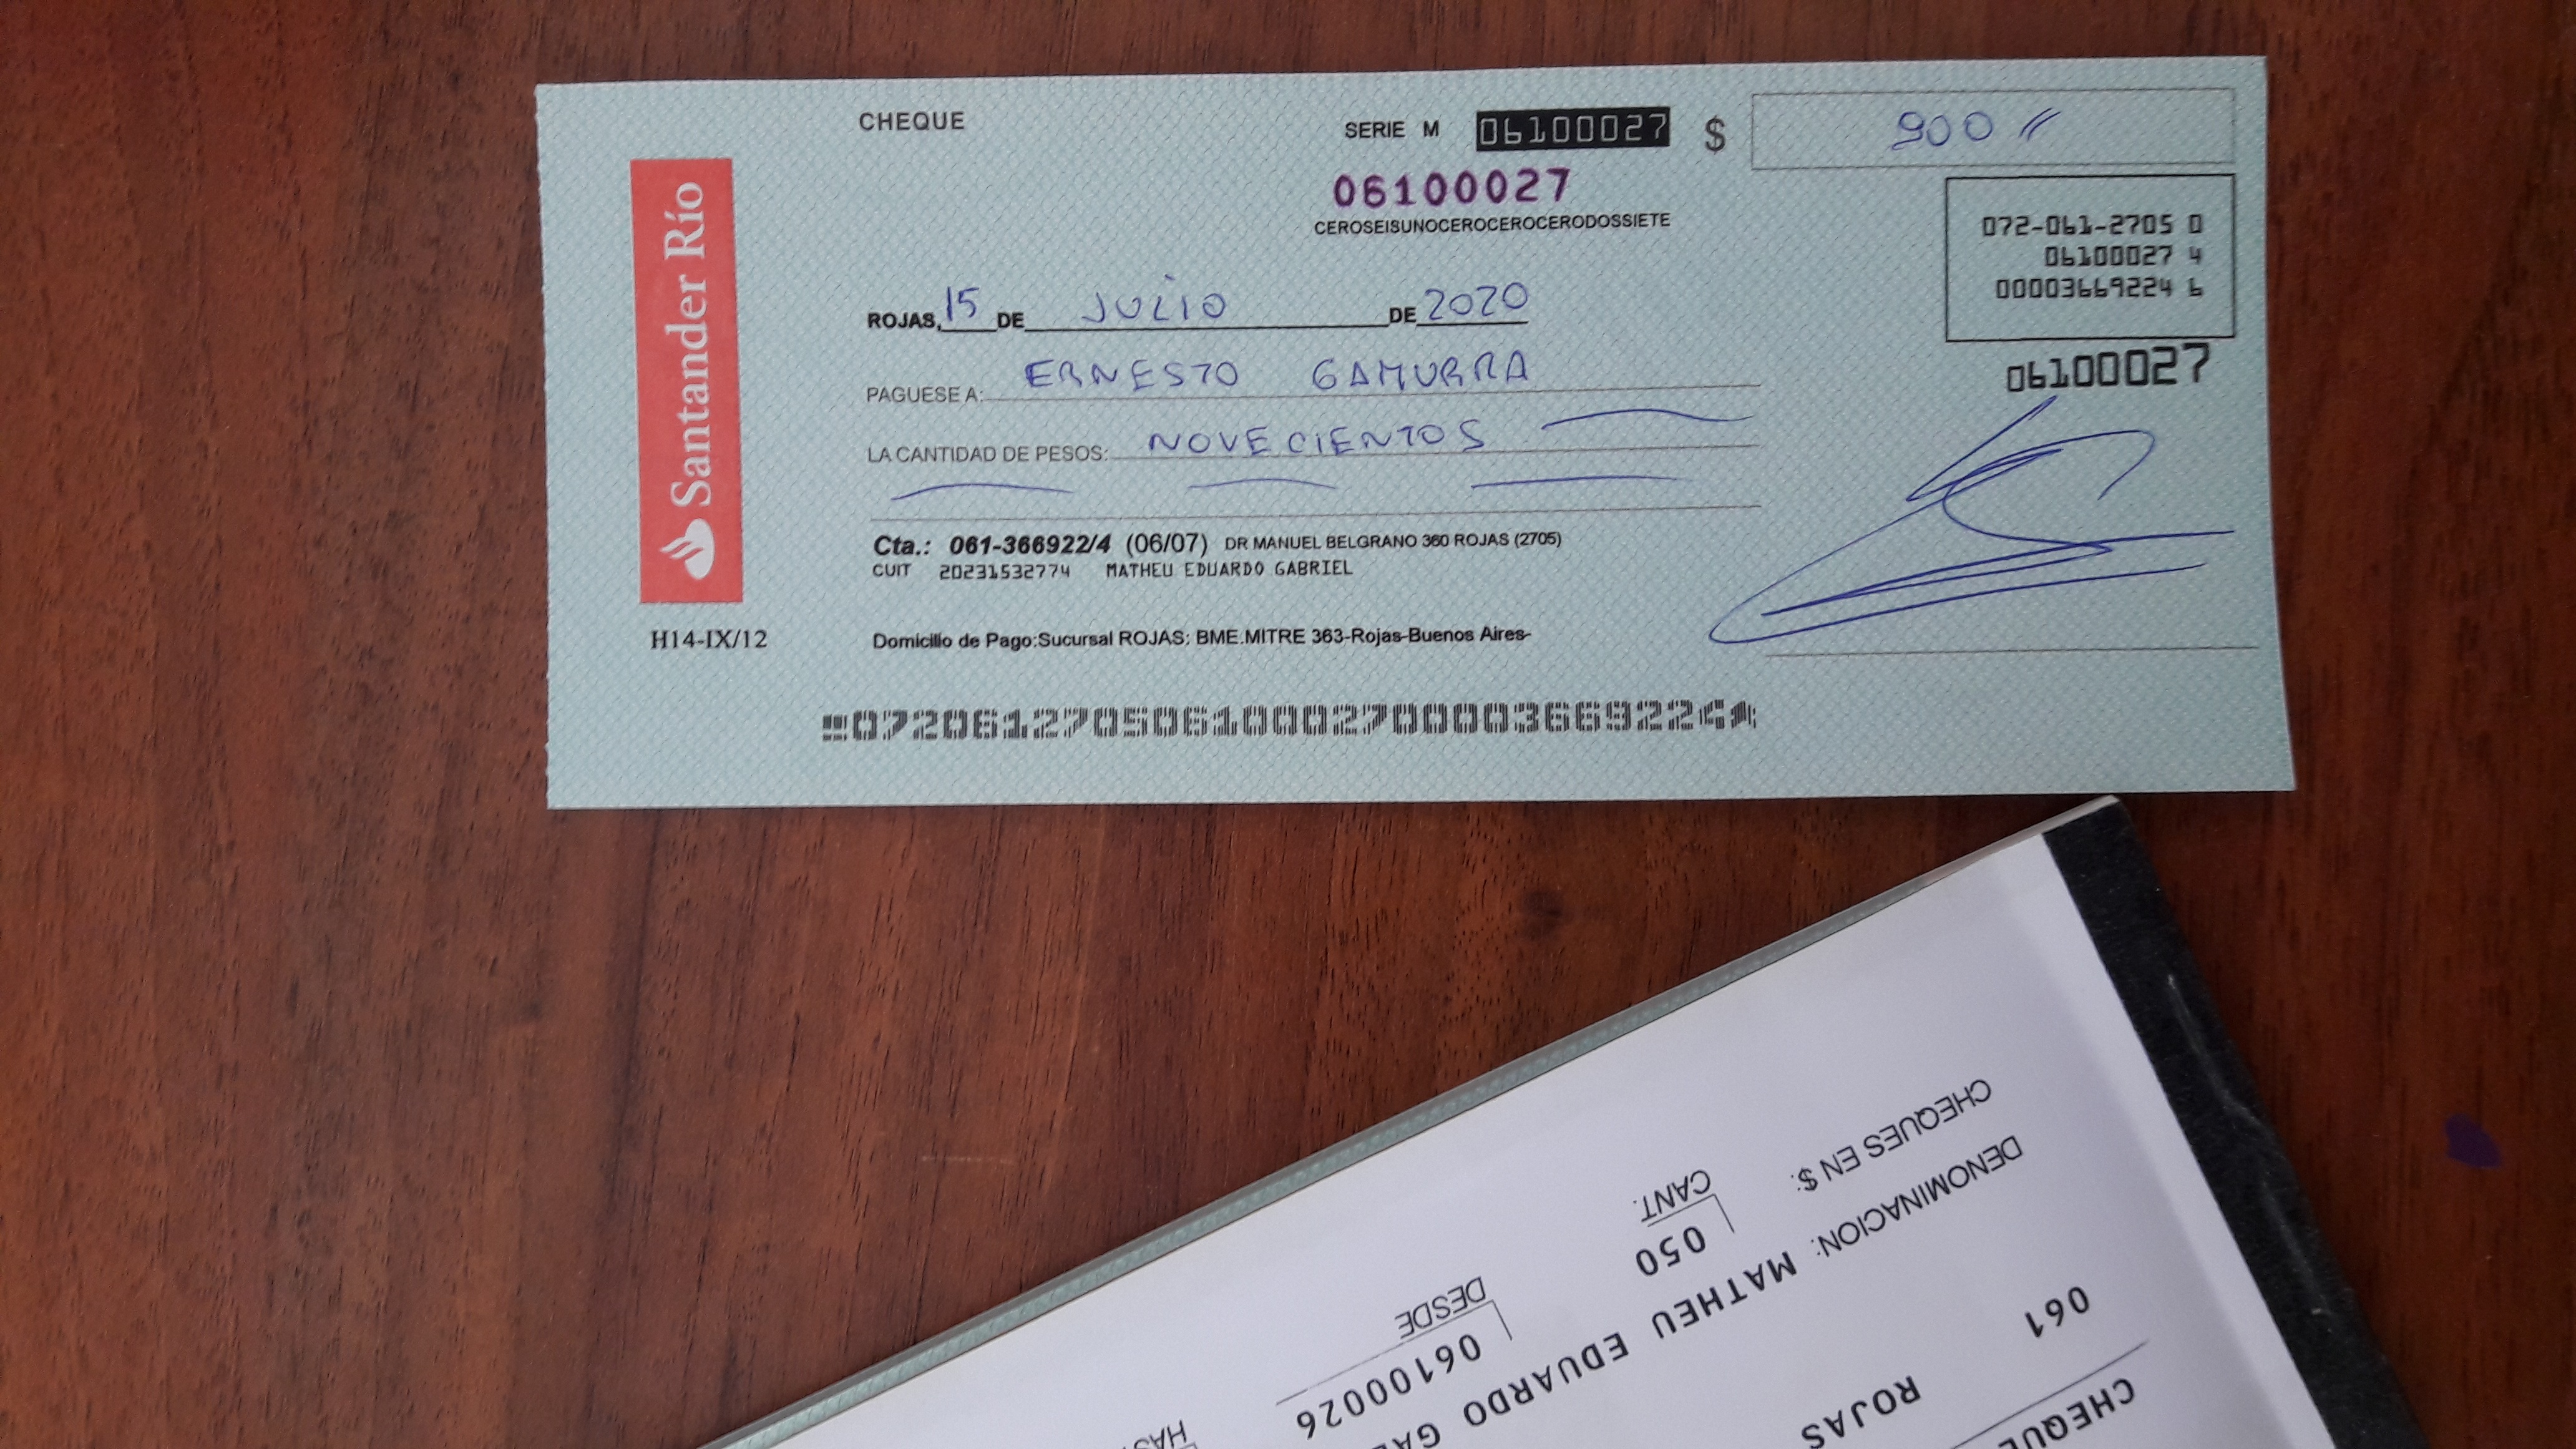 CHEQUE
SERIE M 06100027 $ 900 //
06100027
CEROSEISUNOCEROCEROCERODOSSIETE
Santander Río
072-061-2705 0
06100027 4
00003669224 6
06100027
ROJAS, 15 DE JULIO DE 2020
PAGUESE A: ERNESTO GAMURRA
LA CANTIDAD DE PESOS: NOVECIENTOS
Cta.: 061-366922/4 (06/07) DR MANUEL BELGRANO 360 ROJAS (2705)
CUIT 20231532774 MATHEU EDUARDO GABRIEL
H14-IX/12
Domicilio de Pago:Sucursal ROJAS: BME.MITRE 363-Rojas-Buenos Aires-
07206127050610002700003669224
CHEQUE
061 ROJAS
DENOMINACION: MATHEU EDUARDO GA
CHEQUES EN $:
CANT.
050
DESDE
06100026
HAS